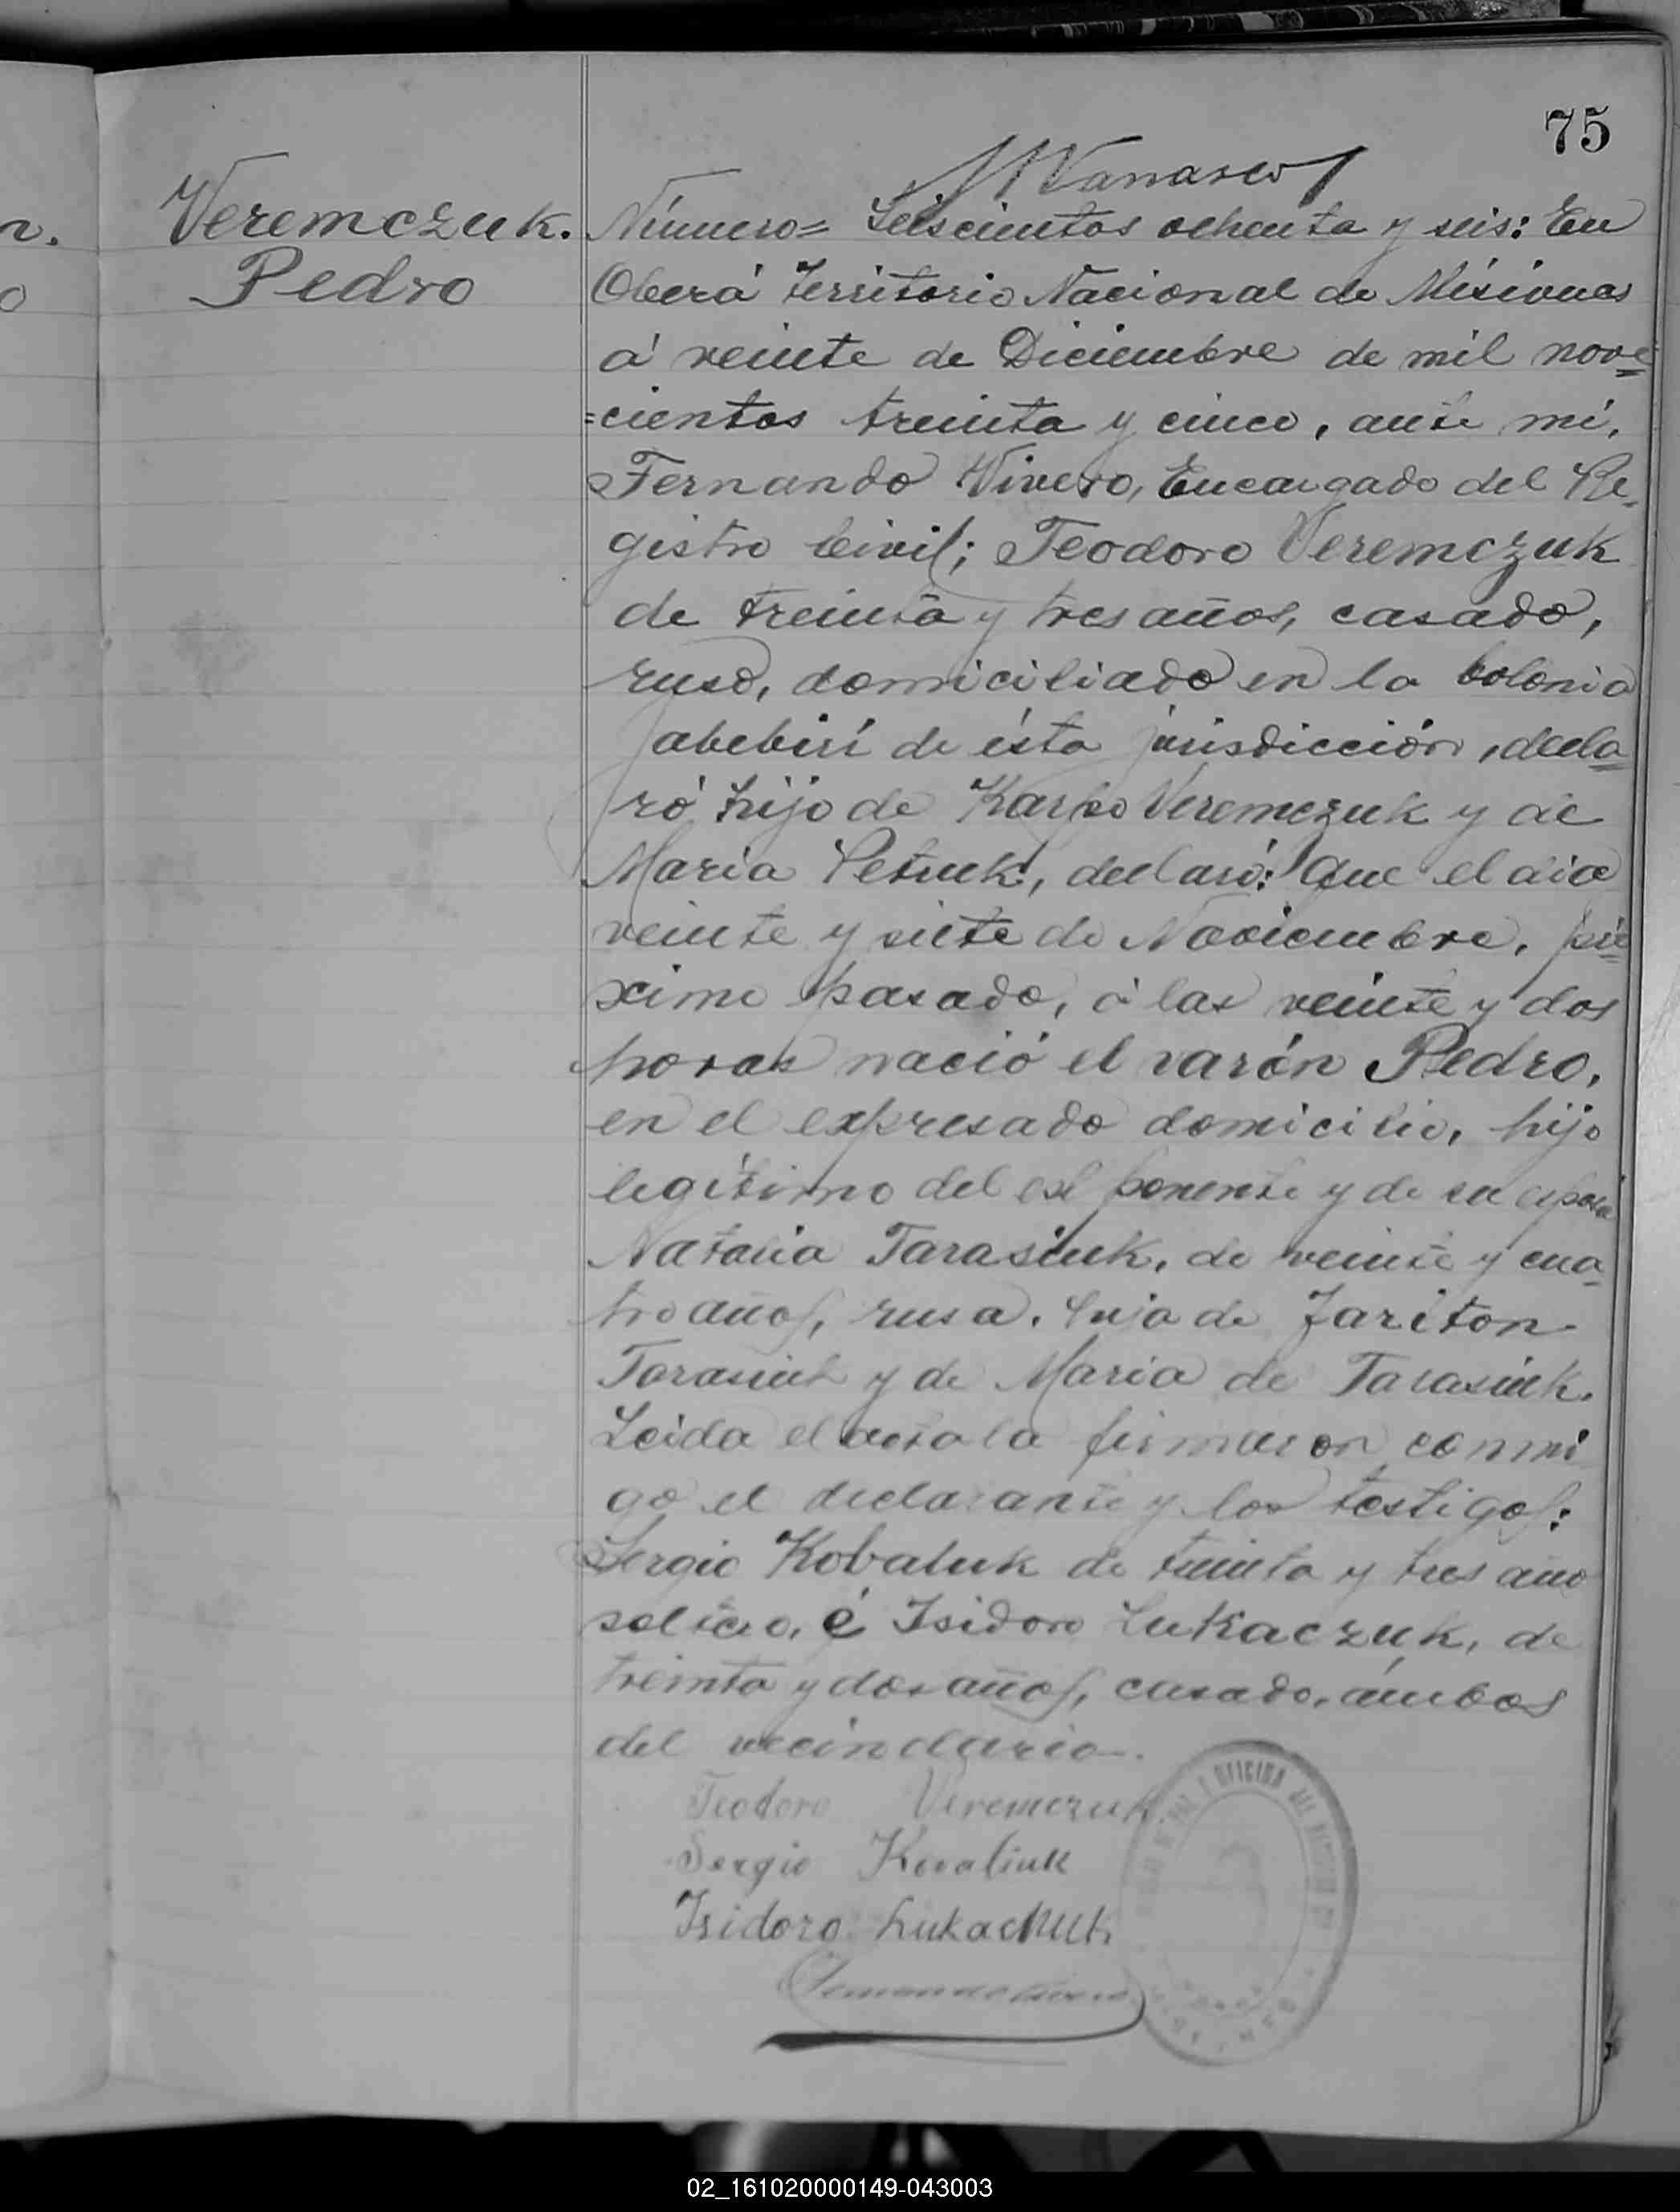 75
n.
o
Veremczuk.
Pedro
Número= Seiscientos ochenta y seis: En
Oberá Territorio Nacional de Misiones
á veinte de Diciembre de mil nove=
=cientos treinta y cinco, ante mí,
Fernando Vivero, Encargado del Re-
gistro Civil; Teodoro Veremczuk
de treinta y tres años, casado,
ruso, domiciliado en la Colonia
Yabebirí de ésta jurisdicción, decla=
ró hijo de Karpo Veremczuk y de
Maria Petruk, declaró: Que el dia
veinte y siete de Noviembre, pró=
ximo pasado, á las veinte y dos
horas nació el varón Pedro,
en el expresado domicilio, hijo
legítimo del exponente y de su esposa
Natalia Tarasiuk, de veinte y cua-
tro años, rusa, hija de Jariton
Tarasiuk y de Maria de Tarasiuk.
Leida el acta la firmaron conmi
go el declarante y los testigos:
Sergio Kobaluk de treinta y tres año
soltero, é Isidoro Lukaczuk, de
treinta y dos años, casado, ámbos
del vecindario.
Teodoro Veremczuk
Sergio Kovaliuk
Isidoro Lukachuk
OFICINA DEL
02_161020000149-043003